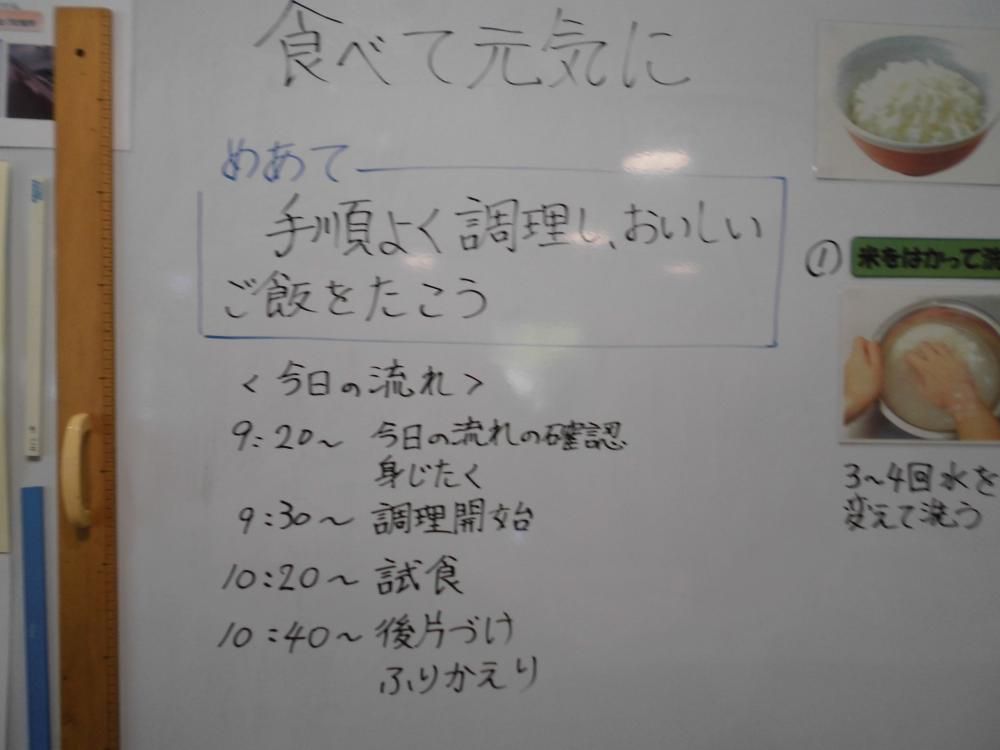 食べて元気に
めあて
手順よく調理し、おいしい
ご飯をたこう
<今日の流れ>
9:20～ 今日の流れの確認
身じたく
9:30～ 調理開始
10:20～ 試食
10:40～ 後片づけ
ふりかえり
① 米をはかって洗
3～4回水を
変えて洗う